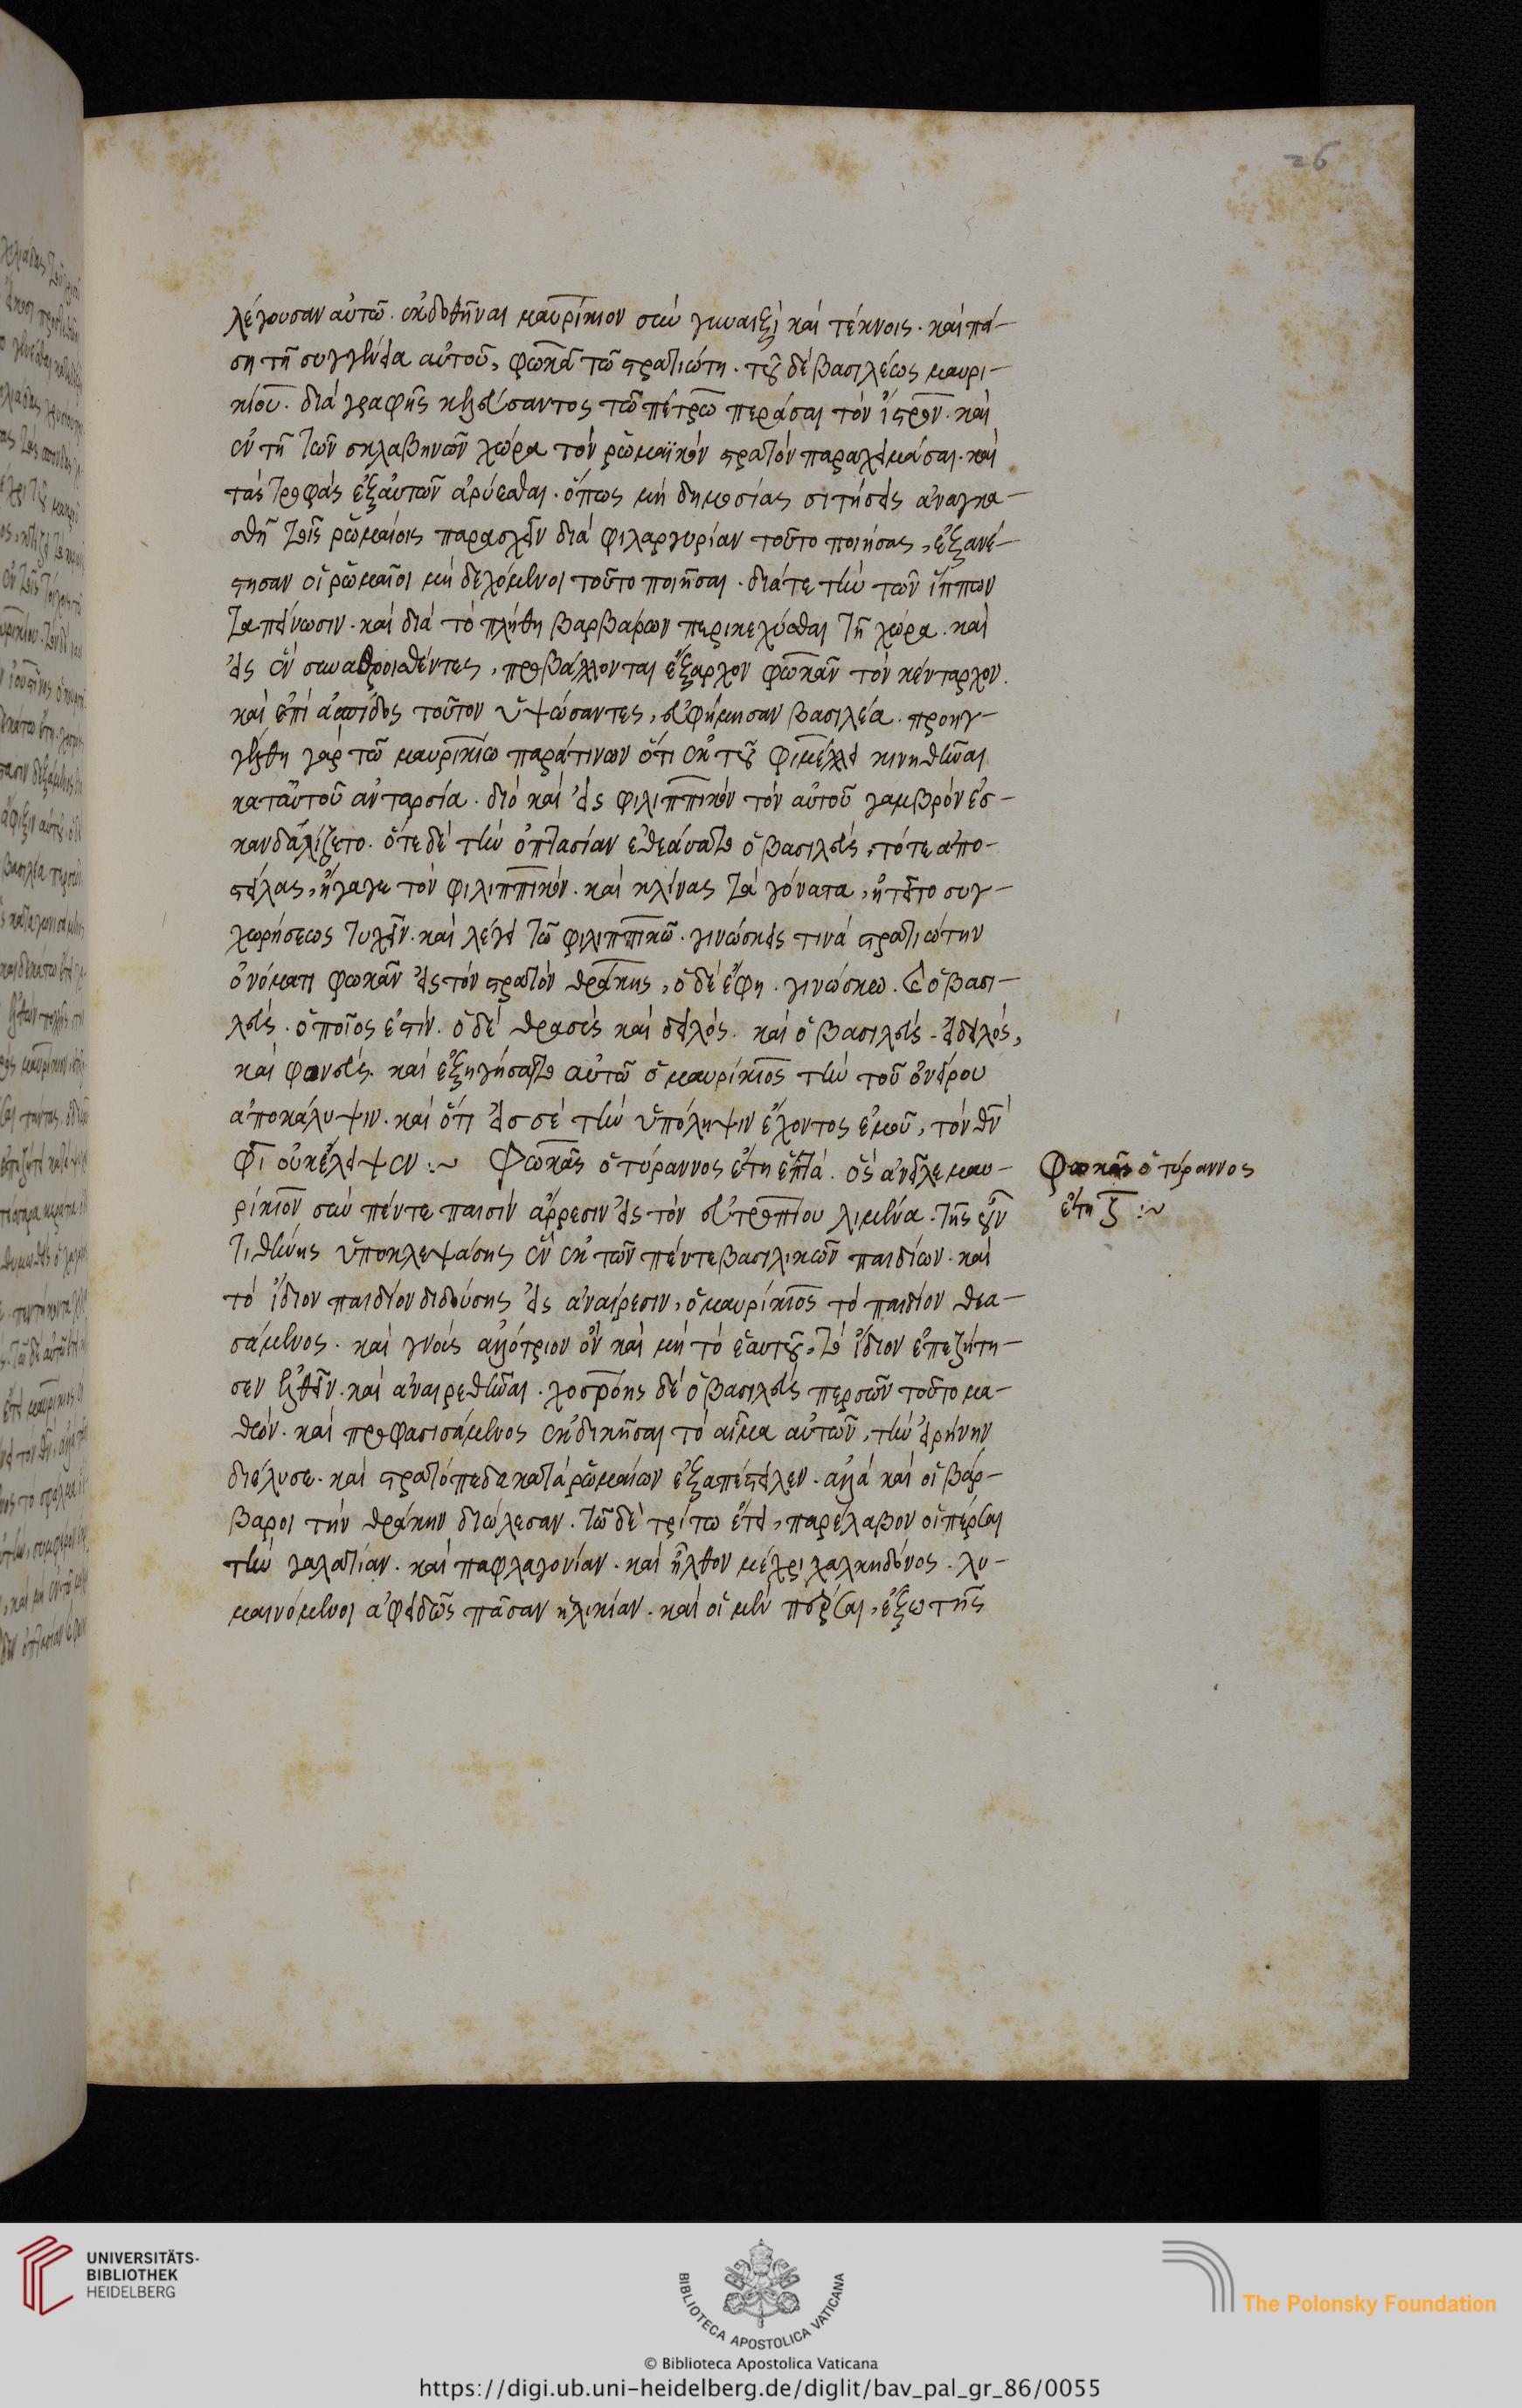 26
λέγουσαν αὐτῶ. ἐκδοθῆναι μαυρίκιον σὺν γυναιξὶ καὶ τέκνοις. καὶ πά-
ση τῆ συγγενεία αὐτοῦ, φωκᾶ τῶ στρατιώτη. τοῦ δὲ βασιλέως μαυρι-
κίου. διὰ γραφῆς κελεύσαντος τῶ πέτρω περάσαι τὸν ἴστρον. καὶ
ἐν τῆ τῶν σκλαβηνῶν χώρα τὸν ῥωμαϊκὸν στρατὸν παραχειμάσαι. καὶ
τὰς τροφὰς ἐξ αὐτῶν ἀρύεσθαι. ὅπως μὴ δημοσίας σιτήσεις ἀναγκα-
σθῆ τοῖς ῥωμαίοις παρασχεῖν διὰ φιλαργυρίαν τοῦτο ποιήσας, ἐξανέ-
στησαν οἱ ῥωμαῖοι μὴ δεχόμενοι τοῦτο ποιῆσαι. διά τε τὴν τῶν ἵππων
ταπείνωσιν. καὶ διὰ τὸ πλήθη βαρβάρων περικεχύσθαι τῆ χώρα. καὶ
εἰς ἓν συναθροισθέντες, προβάλλονται ἔξαρχον φωκᾶν τὸν κένταρχον.
καὶ ἐπὶ ἀσπίδος τοῦτον ὑψώσαντες, εὐφήμησαν βασιλέα. προηγ-
γέλθη γὰρ τῶ μαυρικίω παρά τινων ὅτι ἐκ τοῦ φι μέλλει κινηθῆναι
κατ αὐτοῦ ἀνταρσία. διὸ καὶ εἰς φιλιππικὸν τὸν αὐτοῦ γαμβρὸν ἐσ-
κανδαλίζετο. ὅτε δὲ τὴν ὀπτασίαν ἐθεάσατο ὁ βασιλεὺς, τότε ἀπο-
στείλας, ἤγαγε τὸν φιλιππικόν. καὶ κλίνας τὰ γόνατα, ἠτεῖτο συγ-
χωρήσεως τυχεῖν. καὶ λέγει τῶ φιλιππικῶ. γινώσκεις τινὰ στρατιώτην
ὀνόματι φωκᾶν εἰς τὸν στρατὸν θράκης, ὁ δὲ ἔφη. γινώσκω. καὶ ὁ βασι-
λεύς. ὁποῖος ἐστίν. ὁ δὲ θρασὺς καὶ δειλός. καὶ ὁ βασιλεύς. εἰ δειλός,
καὶ φονεύς. καὶ ἐξηγήσατο αὐτῶ ὁ μαυρίκιος τὴν τοῦ ὀνείρου
ἀποκάλυψιν. καὶ ὅτι εἰς σὲ τὴν ὑπόληψιν ἔχοντος ἐμοῦ, τὸν θν
φι οὐκ ἔλειψεν :~ Φωκᾶς ὁ τύραννος ἔτη ἑπτά. ὃς ἀνεῖλε μαυ-
ρίκιον σὺν πέντε παισὶν ἄρρεσιν εἰς τὸν εὐτροπίου λιμένα. τῆς οὖν
τιθήνης ὑποκλεψάσης ἓν ἐκ τῶν πέντε βασιλικῶν παιδίων. καὶ
τὸ ἴδιον παιδίον διδούσης εἰς ἀναίρεσιν, ὁ μαυρίκιος τὸ παιδίον θεα-
σάμενος. καὶ γνοὺς ἀλλότριον ὂν καὶ μὴ τὸ ἑαυτοῦ, τὸ ἴδιον ἐπεζήτη-
σεν ἐλθεῖν. καὶ ἀναιρεθῆναι. χοσρόης δὲ ὁ βασιλεὺς περσῶν τοῦτο μα-
θών. καὶ προφασισάμενος ἐκδικῆσαι τὸ αἷμα αὐτῶν, τὴν εἰρήνην
διέλυσε. καὶ στρατόπεδα κατὰ ῥωμαίων ἐξαπέστειλεν. ἀλλὰ καὶ οἱ βάρ-
βαροι τὴν θράκην διώλεσαν. τῶ δὲ τρίτω ἔτει, παρέλαβον οἱ πέρσαι
τὴν γαλατίαν. καὶ παφλαγονίαν. καὶ ἦλθον μέχρι χαλκηδόνος. λυ-
μαινόμενοι ἀφειδῶς πᾶσαν ἡλικίαν. καὶ οἱ μὲν πέρσαι, ἔξω τῆς
Φωκᾶς ὁ τύραννος
ἔτη ζ :~
UNIVERSITÄTS-
BIBLIOTHEK
HEIDELBERG
BIBLIOTECA APOSTOLICA VATICANA
The Polonsky Foundation
© Biblioteca Apostolica Vaticana
https://digi.ub.uni-heidelberg.de/diglit/bav_pal_gr_86/0055